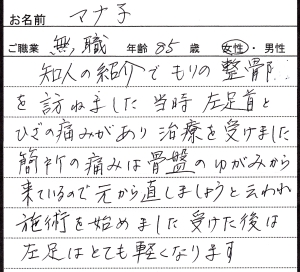 お名前 マナ子
ご職業 無職 年齢 85 歳 女性・男性
知人の紹介でもりの整骨院
を訪ねました 当時 左足首と
ひざの痛みがあり 治療を受けました
箇所の痛みは骨盤のゆがみから
来ているので元から直しましょうと云われ
施術を始めました 受けた後は
左足はとても軽くなります